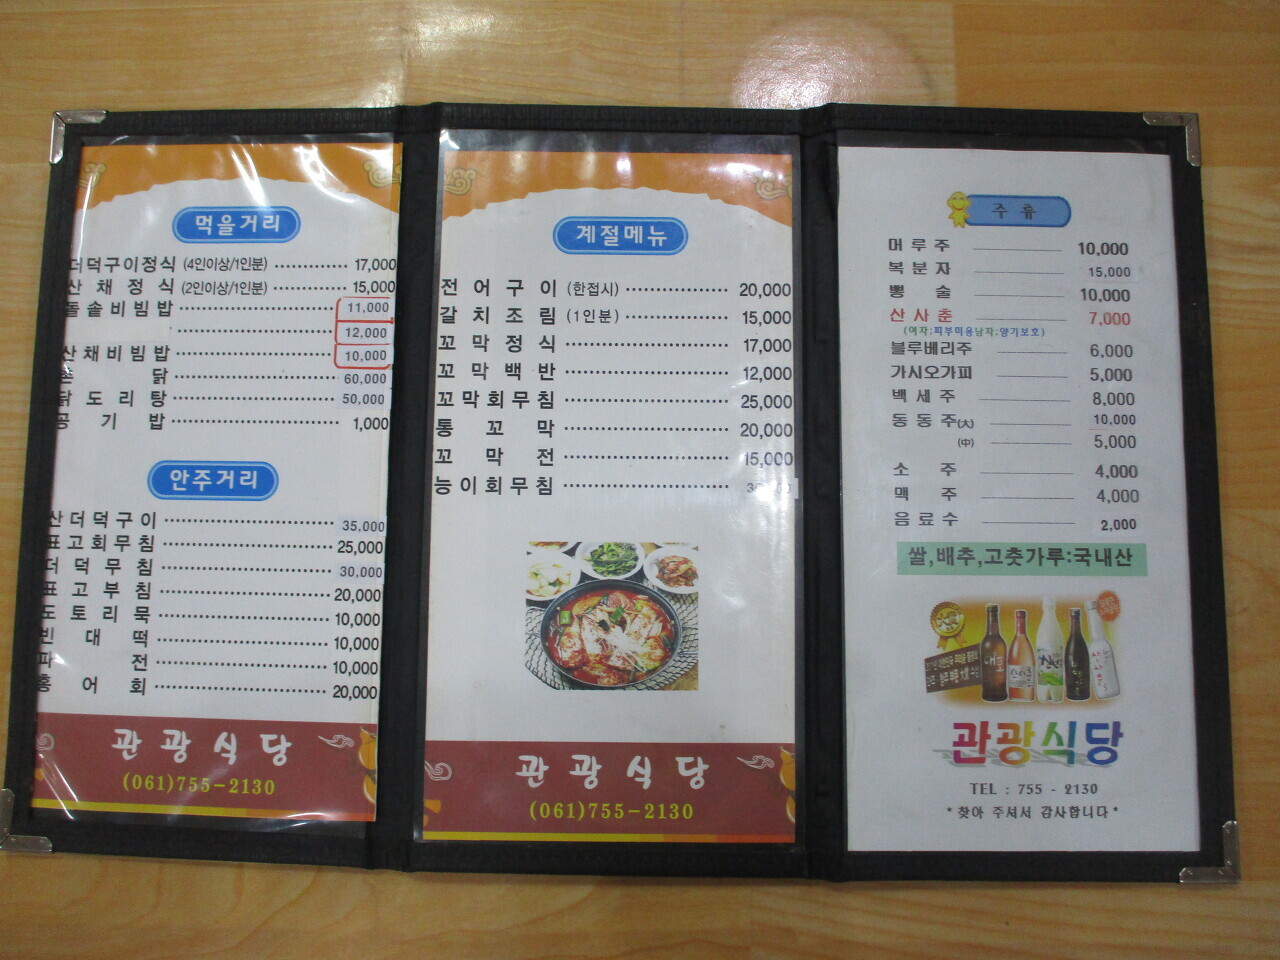 먹을거리
더덕구이정식 (4인이상/1인분) 17,000
산채정식 (2인이상/1인분) 15,000
돌솥비빔밥 11,000
12,000
산채비빔밥 10,000
닭 60,000
닭도리탕 50,000
공기밥 1,000
안주거리
산더덕구이 35,000
표고회무침 25,000
더덕무침 30,000
표고부침 20,000
도토리묵 10,000
빈대떡 10,000
파전 10,000
홍어회 20,000
관광식당
(061)755-2130
계절메뉴
전어구이 (한접시) 20,000
갈치조림 (1인분) 15,000
꼬막정식 17,000
꼬막백반 12,000
꼬막회무침 25,000
통꼬막 20,000
꼬막전 15,000
능이회무침
관광식당
(061)755-2130
주류
머루주 10,000
복분자 15,000
뽕술 10,000
산사춘 7,000
(여자:피부미용남자:양기보호)
블루베리주 6,000
가시오가피 5,000
백세주 8,000
동동주(大) 10,000
(中) 5,000
소주 4,000
맥주 4,000
음료수 2,000
쌀,배추,고춧가루:국내산
관광식당
TEL : 755 - 2130
*찾아 주셔서 감사합니다*